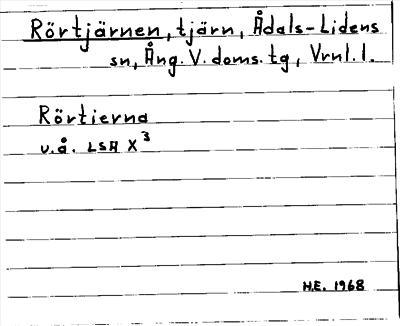 Rörtjärnen, tjärn, Ådals-Lidens
sn, Ång. V. doms. tg, Vrnl. l.
Rörtierna
u.å. LSA X³
H.E. 1968